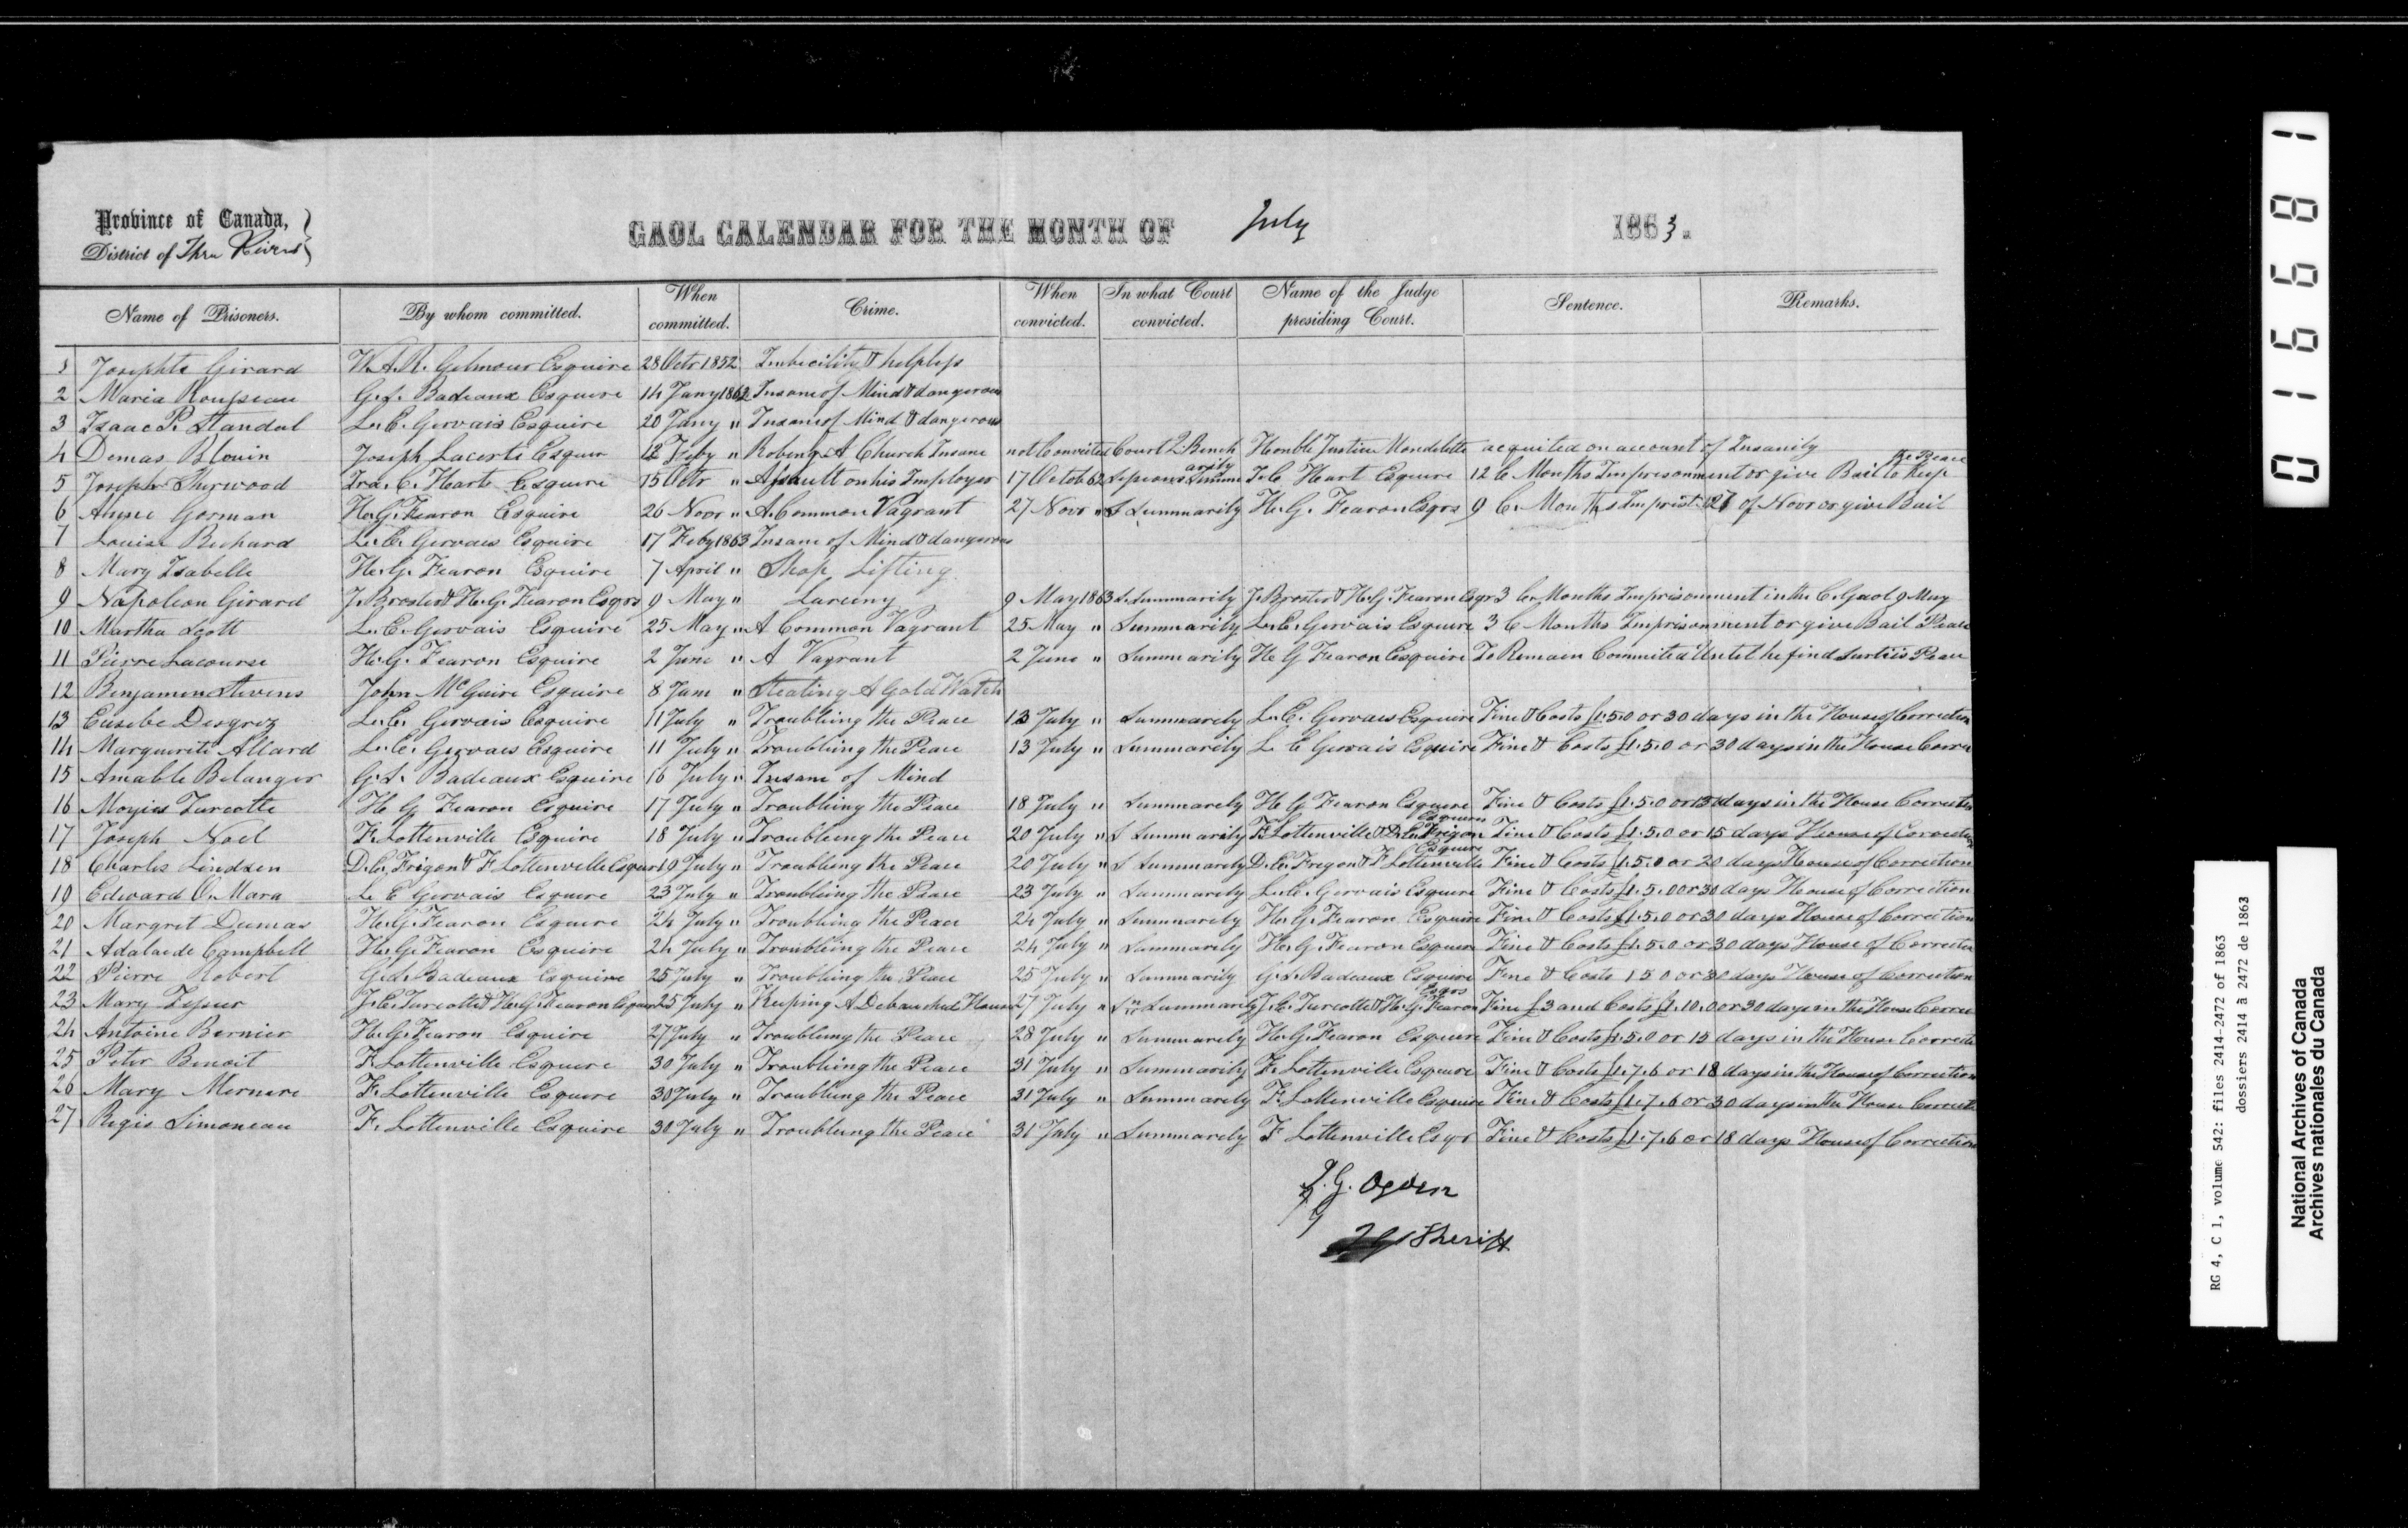 Province of Canada,
District of Three Rivers
GAOL CALENDAR FOR THE MONTH OF July 1863.
Name of Prisoners. By whom committed. When committed. Crime. When convicted. In what Court convicted. Name of the Judge presiding Court. Sentence. Remarks.
1 Josephte Girard W. A. R. Gilmour Esquire 28 Octr 1852 Imbecility & helpless
2 Maria Rousseau G. S. Badeaux Esquire 14 Jany 1862 Insane of Mind & dangerous
3 Isaac P. Standal L. E. Gervais Esquire 20 Jany " Insane of Mind & dangerous
4 Demas Blouin Joseph Lacerte Esquir 12 Feby " Robing A Church Insane not Convicted Court Q. Bench Honble Justice Mondelette acquited on account of Insanity
5 Joseph Sherwood Ira. C. Hart Esquire 15 Octr " Assault on his Imployer 17 Octob 62 I. C Hart Esquire 12 C Months Imprisonment or give Bail to Keep the Peace
6 Anne Gorman H. G. Fearon Esquire 26 Novr " A Common Vagrant 27 Novr " S Summarily H. G. Fearon Esqrs 9 C. Months Imprist. 27 of Novr or give Bail
7 Louise Richard L. E. Gervais Esquire 17 Feby 1863 Insane of Mind & dangerous
8 Mary Isabelle H. G. Fearon Esquire 7 April " Shop Lifting
9 Napoleon Girard J. Broster & H. G. Fearon Esqrs 9 May " Larceny 9 May 1863 S. Summarily J. Broster & H. G. Fearon Esqr 3 C. Months Imprisonment in the C. Gaol 9 May
10 Martha Scott L. E. Gervais Esquire 25 May " A Common Vagrant 25 May " Summarily L. E. Gervais Esquire 3 C Months Imprisonment or give Bail Peace
11 Pierre Lacourse H. G. Fearon Esquire 2 June " A Vagrant 2 June " Summarily H G Fearon Esquire To Remain Commited Untel he find Surtiis Peace
12 Benjamin Stevens John McGuire Esquire 8 June " Stealing A Gold Watch
13 Eusebe Desgroz L. E. Gervais Esquire 11 July " Troubling the Peace 13 July " Summarily L. E. Gervais Esquire Fine & Costs £1.5.0 or 30 days in the House of Correction
14 Marguerite Allard L. E. Gervais Esquire 11 July " Troubling the Peace 13 July " Summarily L E Gervais Esquire Fine & Costs £1.5.0 or 30 days in the House Corre
15 Amable Belanger G. S. Badeaux Esquire 16 July " Insane of Mind
16 Moyies Turcotte H G Fearon Esquire 17 July " Troubling the Peace 18 July " Summarely H G Fearon Esquire Fine & Costs £1.5.0 or 15 days in the House Correction
17 Joseph Noel F. Lottenville Esquire 18 July " Troubleing the Peace 20 July " S Summarily F. Lottenville & D. C. Frigon Esquire Fine & Costs £1.5.0 or 15 days House of Correction
18 Charles Lindsen D. C. Frigon & F Lottenville Esquir 19 July " Troubling the Peace 20 July " S Summarely D. C. Frigon & F Lottenville Esquire Fine & Costs £1.5.0 or 20 days House of Correction
19 Edward O. Mara L E Gervais Esquire 23 July " Troubling the Peace 23 July " Summarely L. E. Gervais Esquire Fine & Costs £1.5.0 or 30 days House of Correction
20 Margret Dumas H. G. Fearon Esquire 24 July " Troubling the Peace 24 July " Summarely H. G. Fearon Esquire Fine & Costs £1.5.0 or 30 days House of Correction
21 Adalaide Campbell H. G. Fearon Esquire 24 July " Troubleing the Peace 24 July " Summarely H. G. Fearon Esquire Fine & Costs £1.5.0 or 30 days House of Correction
22 Pierre Robert G. S. Badeaux Esquire 25 July " Troubleing the Peace 25 July " Summarily G. S. Badeaux Esquire Fine & Costs 1 5 0 or 30 days House of Correction
23 Mary J. E. Turcotte & H. G. Fearon Esquir 25 July " Keeping A Debauched House 27 July " Summarily J. E. Turcotte & H. G. Fearon Esqrs Fine £3 and Costs £1.10.0 or 30 days in the House Correc
24 Antoine Bernier H. G. Fearon Esquire 27 July " Troubleing the Peace 28 July " Summarely H. G. Fearon Esquire Fine & Costs £1.5.0 or 15 days in the House Correcti
25 Peter Benoit F. Lottenville Esquire 30 July " Troubleing the Peace 31 July " Summarily F. Lottenville Esquire Fine & Costs £1.7.6 or 18 days in the House of Correction
26 Mary Mernere F. Lottenville Esquire 30 July " Troubleing the Peace 31 July " Summarely F. Lottenville Esquire Fine & Costs £1.7.6 or 30 days in the House Correcti
27 Regis Simoneau F. Lottenville Esquire 30 July " Troubleing the Peace 31 July " Summarely F Lottenville Esqr Fine & Costs £1.7.6 or 18 days House of Correction
I. G. Ogden
Sheriff
01681
RG 4, C 1, volume 542: files 2414-2472 of 1863
dossiers 2414 à 2472 de 1863
National Archives of Canada
Archives nationales du Canada